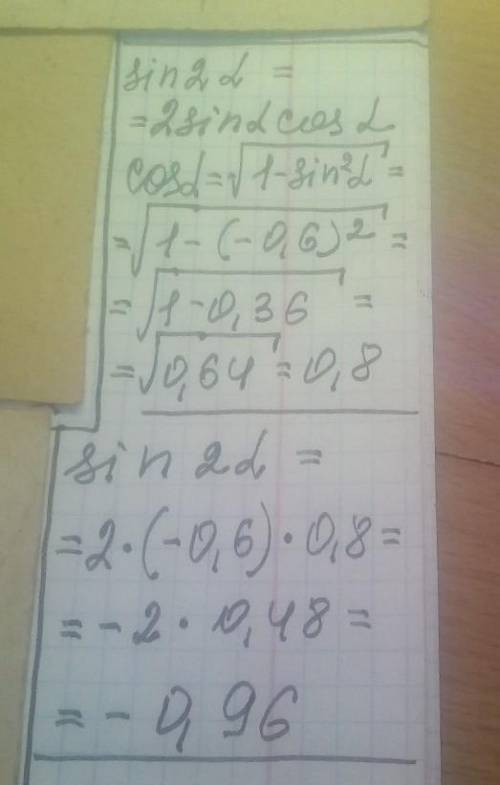 sin2α =
=2sinαcosα
cosα=√1-sin²α =
=√1-(-0,6)² =
=√1-0,36 =
=√0,64 = 0,8
sin2α =
=2·(-0,6)·0,8=
=-2·0,48=
=-0,96